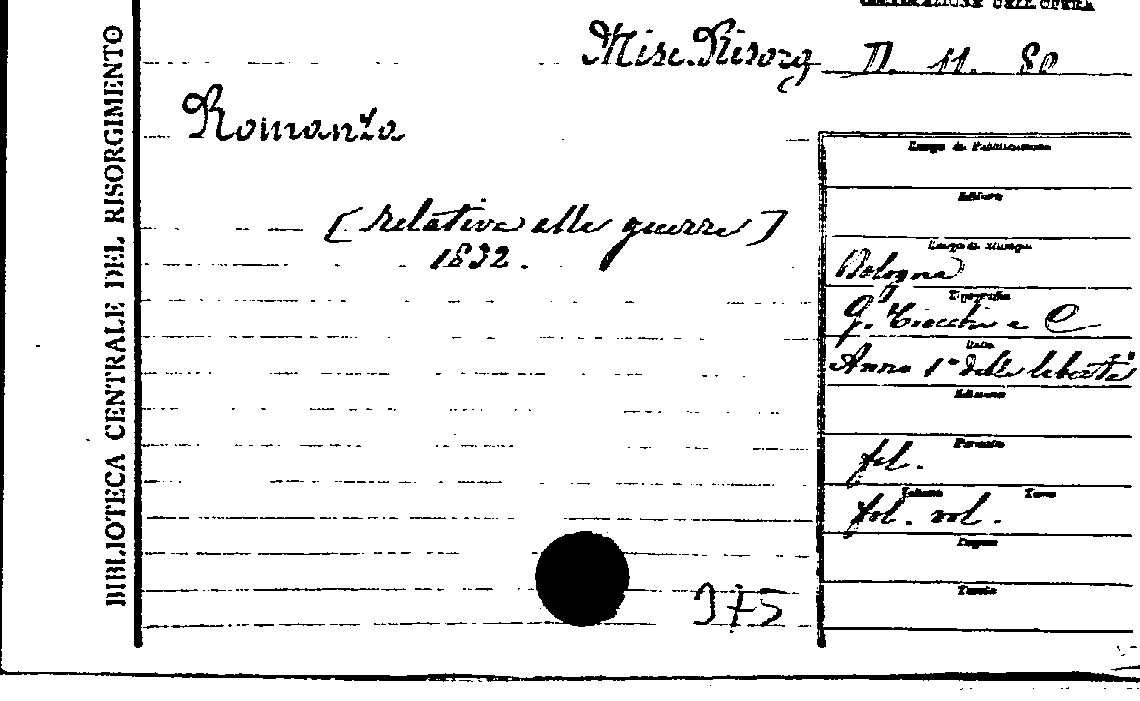 COLLOCAZIONE DELL'OPERA
Misc. Risorg II. 11. 80
Romanza
[relativa alle guerre]
1832.
BIBLIOTECA CENTRALE DEL RISORGIMENTO
Luogo di Pubblicazione
Editore
Luogo di Stampa
Bologna
Tipografia
G. Tiocchi e C
Data
Anno 1° della libertà
Edizione
Formato
fol.
Volume Tomo
fol. vol.
Pagine
Tavole
375